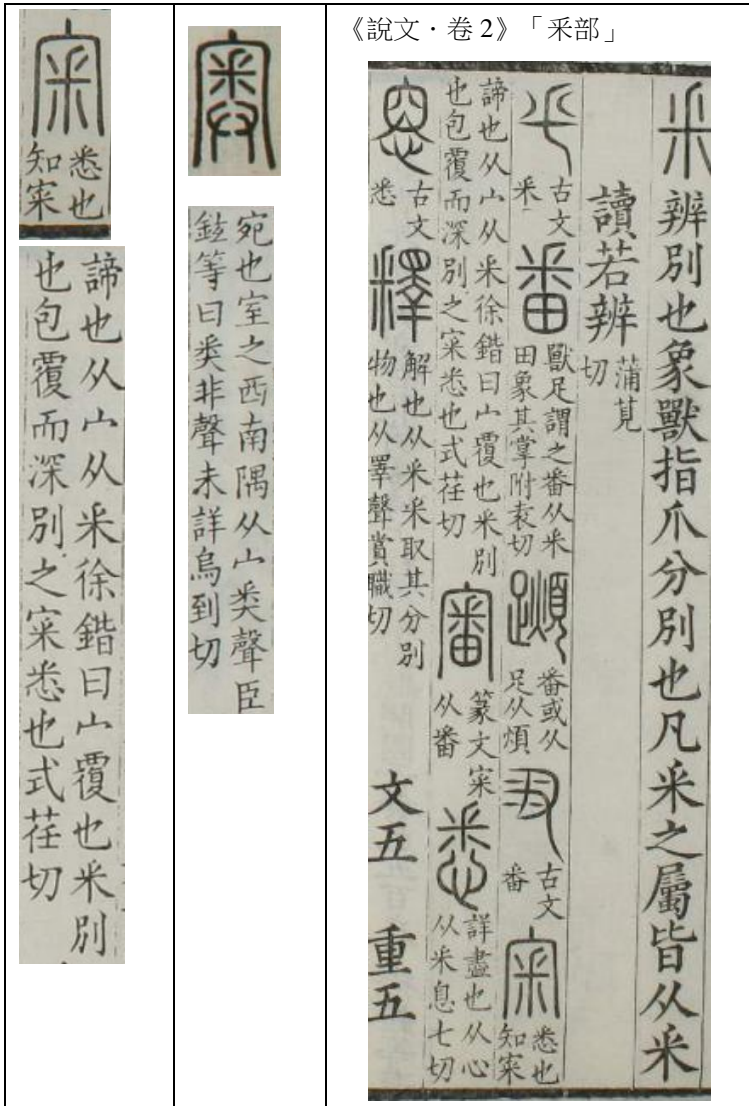 宷
悉也
知宷
諦也从宀从釆徐鍇曰宀覆也釆別
也包覆而深別之宷悉也式荏切
宛也室之西南隅从宀𢍏聲臣
鉉等曰𢍏非聲未詳烏到切
《說文．卷2》「釆部」
釆 辨別也象獸指爪分別也凡釆之屬皆从釆
讀若辨 蒲莧切
古文釆 番 獸足謂之番从釆田象其掌附袁切 番或从足从煩 古文番 宷 悉也知宷
諦也从宀从釆徐鍇曰宀覆也釆別也包覆而深別之宷悉也式荏切 審 篆文宷从番 悉 詳盡也从心从釆息七切
古文悉 釋 解也从釆釆取其分別物也从睪聲賞職切 文五 重五